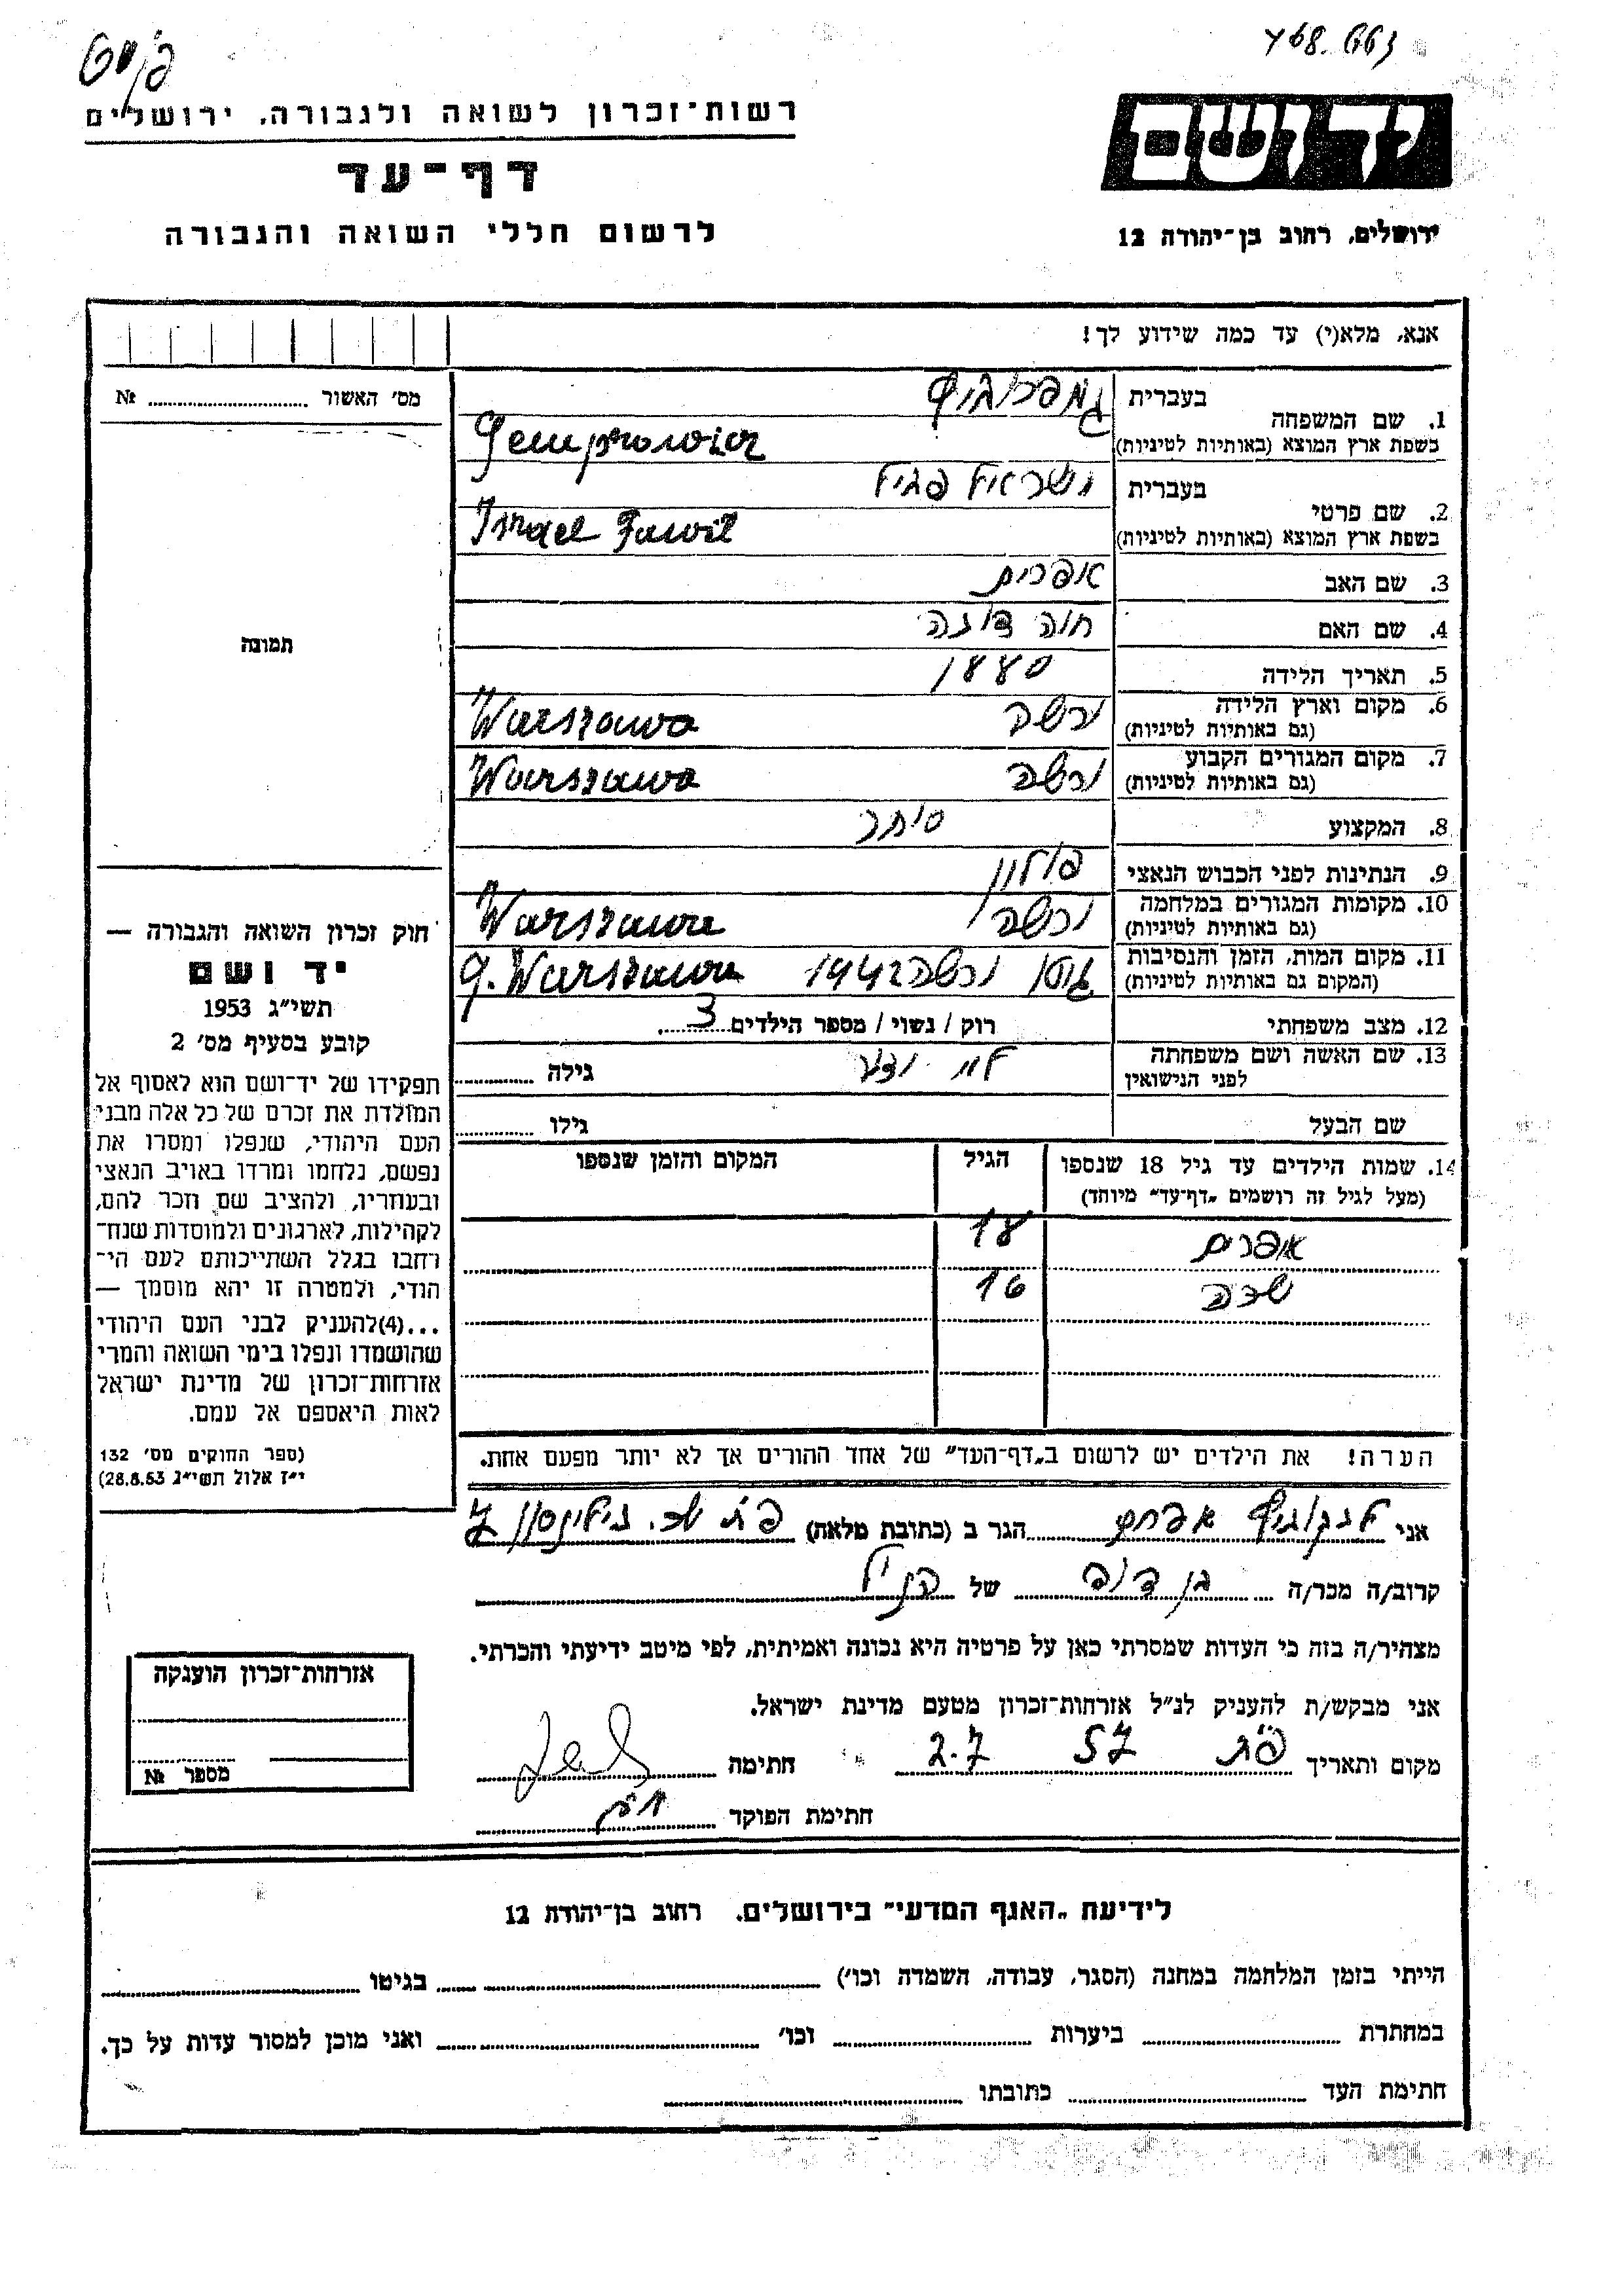 רשות־זכרון לשואה ולגבורה, ירושלים
דף־עד
לרשום חללי השואה והגבורה
ידושם
ירושלים, רחוב בן־יהודה 12
אנא, מלא(י) עד כמה שידוע לך!
מס׳ האשור № 
1. שם המשפחה בעברית
בשפת ארץ המוצא (באותיות לטיניות)
2. שם פרטי בעברית ישראל פביל
בשפת ארץ המוצא (באותיות לטיניות) Israel Fawil
3. שם האב אפרים
4. שם האם חוה
5. תאריך הלידה 1880
6. מקום וארץ הלידה ורשה Warszawa
(גם באותיות לטיניות)
7. מקום המגורים הקבוע ורשה Warszawa
(גם באותיות לטיניות)
8. המקצוע סוחר
9. הנתינות לפני הכבוש הנאצי פולין
10. מקומות המגורים במלחמה ורשה Warszawa
(גם באותיות לטיניות)
11. מקום המות, הזמן והנסיבות גטו ורשה 1942 g. Warszawa
(המקום גם באותיות לטיניות)
12. מצב משפחתי רוק / נשוי / מספר הילדים 3
13. שם האשה ושם משפחתה גילה
לפני הנישואין
שם הבעל גילו
14. שמות הילדים עד גיל 18 שנספו הגיל המקום והזמן שנספו
(מעל לגיל זה רושמים „דף־עד״ מיוחד)
אפרים 18
שרה 16
הערה! את הילדים יש לרשום ב„דף־העד״ של אחד ההורים אך לא יותר מפעם אחת.
תמונה
חוק זכרון השואה והגבורה —
יד ושם
תשי״ג 1953
קובע בסעיף מס׳ 2
תפקידו של יד־ושם הוא לאסוף אל
המולדת את זכרם של כל אלה מבני
העם היהודי, שנפלו ומסרו את
נפשם, נלחמו ומרדו באויב הנאצי
ובעוזריו, ולהציב שם וזכר להם,
לקהילות, לארגונים ולמוסדות שנח־
רבו בגלל השתייכותם לעם הי־
הודי, ולמטרה זו יהא מוסמך —
...(4)להעניק לבני העם היהודי
שהושמדו ונפלו בימי השואה והמרי
אזרחות־זכרון של מדינת ישראל
לאות היאספם אל עמם.
(ספר החוקים מס׳ 132
י״ז אלול תשי״ג 28.8.53)
אני אפרים הגר ב (כתובת מלאה) פ״ת
קרוב/ה מכר/ה בן דוד של הנ״ל
מצהיר/ה בזה כי העדות שמסרתי כאן על פרטיה היא נכונה ואמיתית, לפי מיטב ידיעתי והכרתי.
אני מבקש/ת להעניק לנ״ל אזרחות־זכרון מטעם מדינת ישראל.
מקום ותאריך פ״ת 57 2.7 חתימה
חתימת הפוקד
אזרחות־זכרון הוענקה
מספר №
לידיעת „האגף המדעי״ בירושלים. רחוב בן־יהודה 12
הייתי בזמן המלחמה במחנה (הסגר, עבודה, השמדה וכו׳) בגיטו
במחתרת ביערות וכו׳ ואני מוכן למסור עדות על כך.
חתימת העד כתובתו